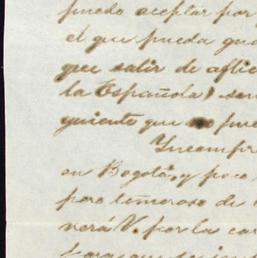 puedo aceptar por
el que pueda gua
que salir de aflic
la Española) sen
quiente que no pue
Incompre
en Bogotá, y poco
pero temeroso de
verá V. por la car